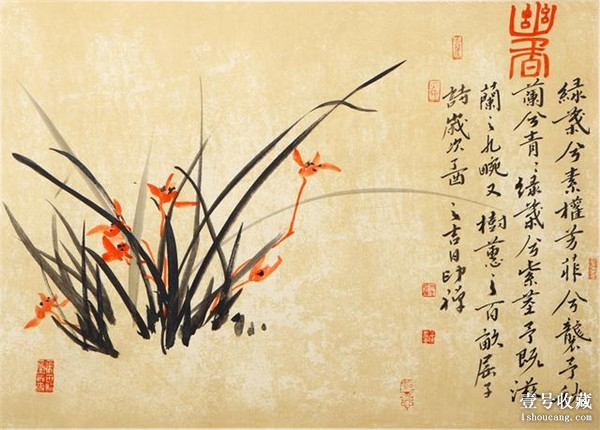 幽香
綠葉兮素權芳菲兮襲予秋
蘭兮青〻綠葉兮紫莖予既滋
蘭之九畹又樹蕙之百畝屈子
詩歲次丁酉之吉日印禪
壹号收藏
1shoucang.com